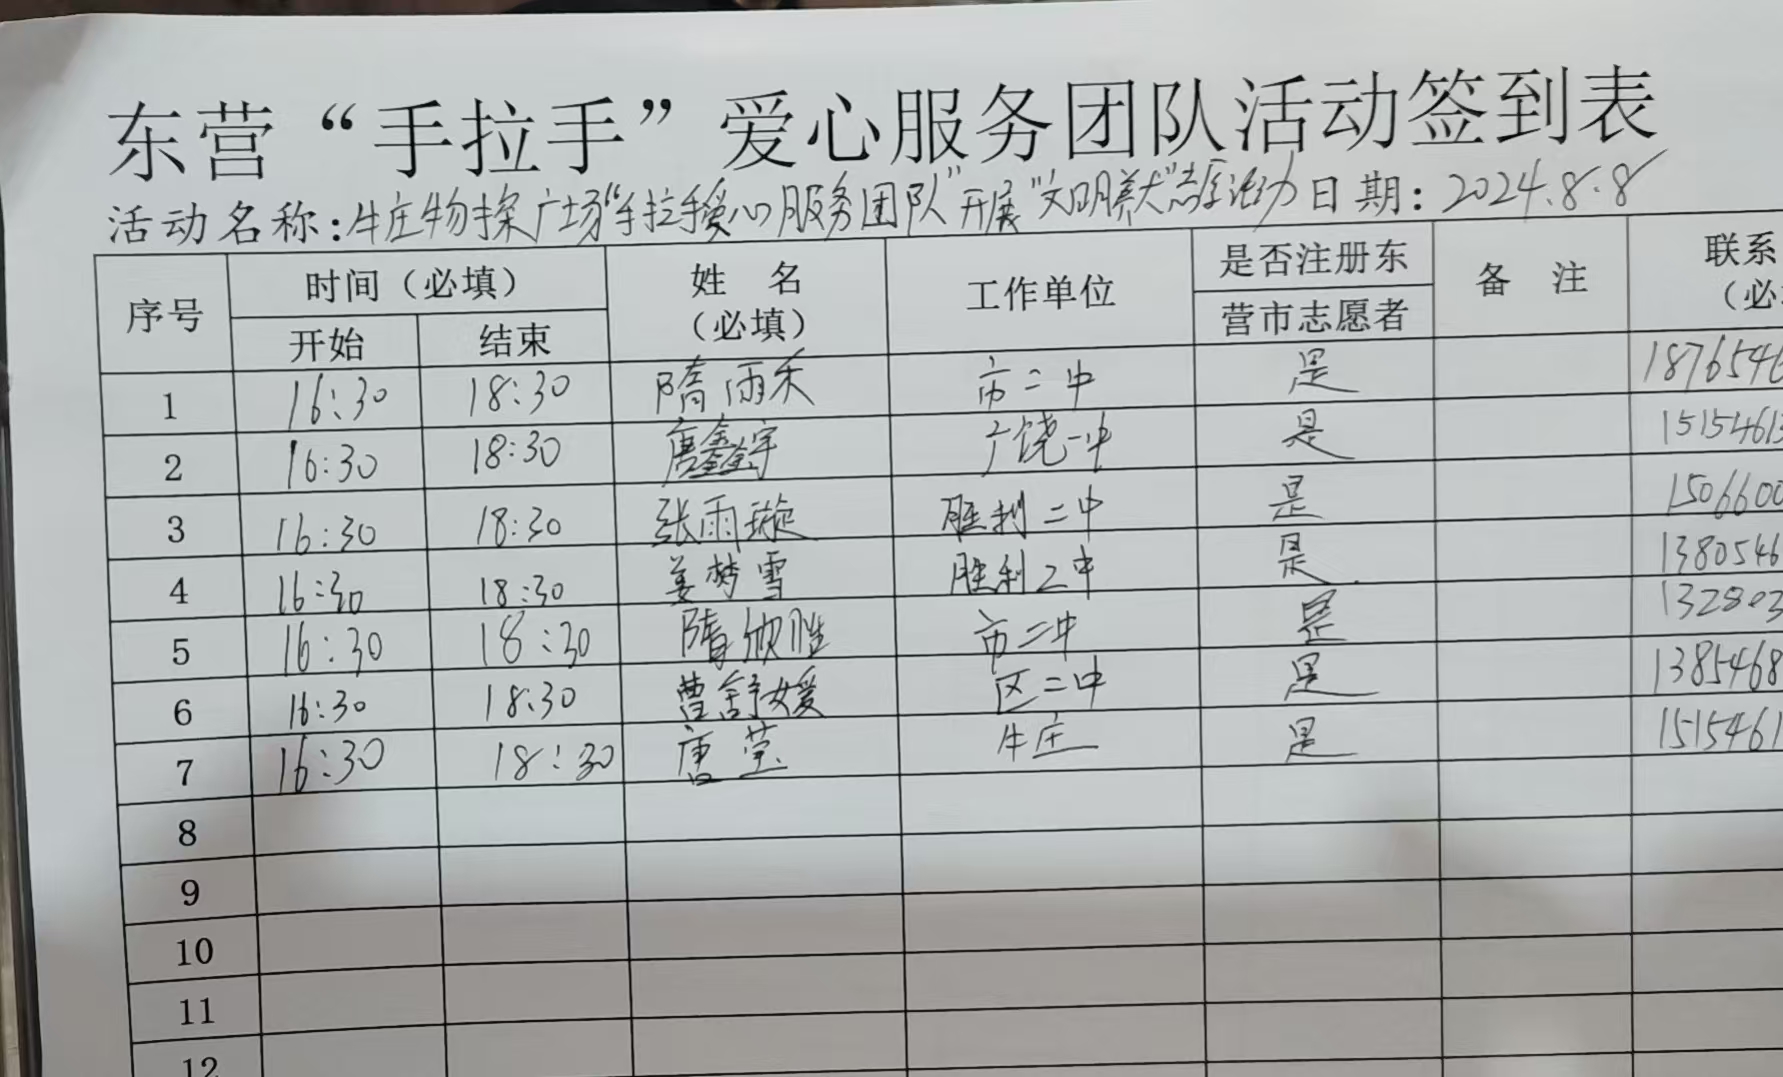 东营“手拉手”爱心服务团队活动签到表
活动名称：牛庄物探广场“手拉手爱心服务团队”开展“文明养犬”志愿活动 日期：2024.8.8
序号 时间（必填） 姓 名（必填） 工作单位 是否注册东营市志愿者 备 注 联系 （必
开始 结束
1 16:30 18:30 隋雨禾 市二中 是 1876546
2 16:30 18:30 唐鑫宇 广饶一中 是 1515461
3 16:30 18:30 张雨璇 胜利二中 是 1506600
4 16:30 18:30 姜梦雪 胜利二中 是 1380546
5 16:30 18:30 隋欣胜 市二中 是 132803
6 16:30 18:30 曹舒媛 区二中 是 1385468
7 16:30 18:30 唐莹 牛庄 是 1515461
8
9
10
11
12